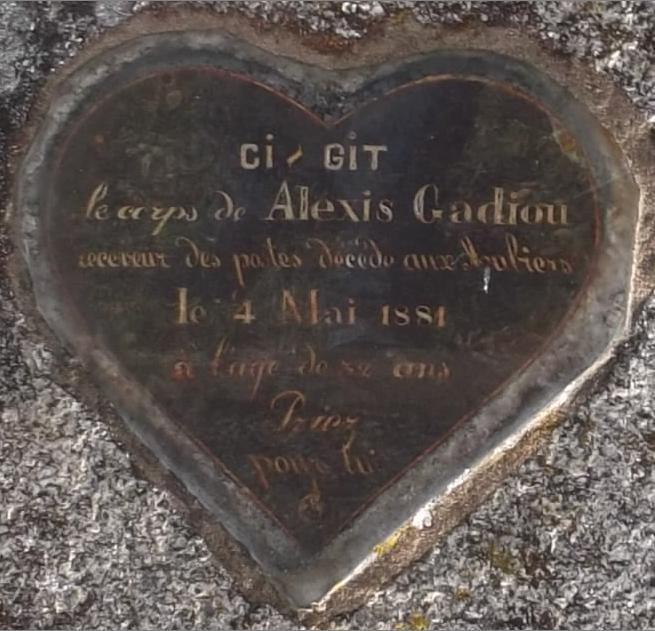 CI - GIT
le corps de Alexis Gadiou
receveur des postes décédé aux Aubiers
le 4 Mai 1881
à l'age de ans
Priez
pour lui